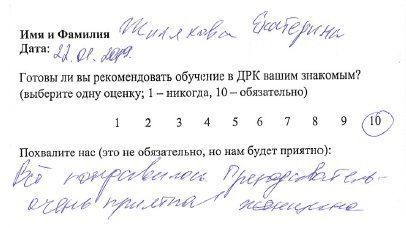 Имя и Фамилия Жилякова Екатерина
Дата: 22.01.2019.
Готовы ли вы рекомендовать обучение в ДРК вашим знакомым?
(выберите одну оценку; 1 – никогда, 10 – обязательно)
1 2 3 4 5 6 7 8 9 10
Похвалите нас (это не обязательно, но нам будет приятно):
Всё понравилось. Преподаватель-
очень приятная женщина